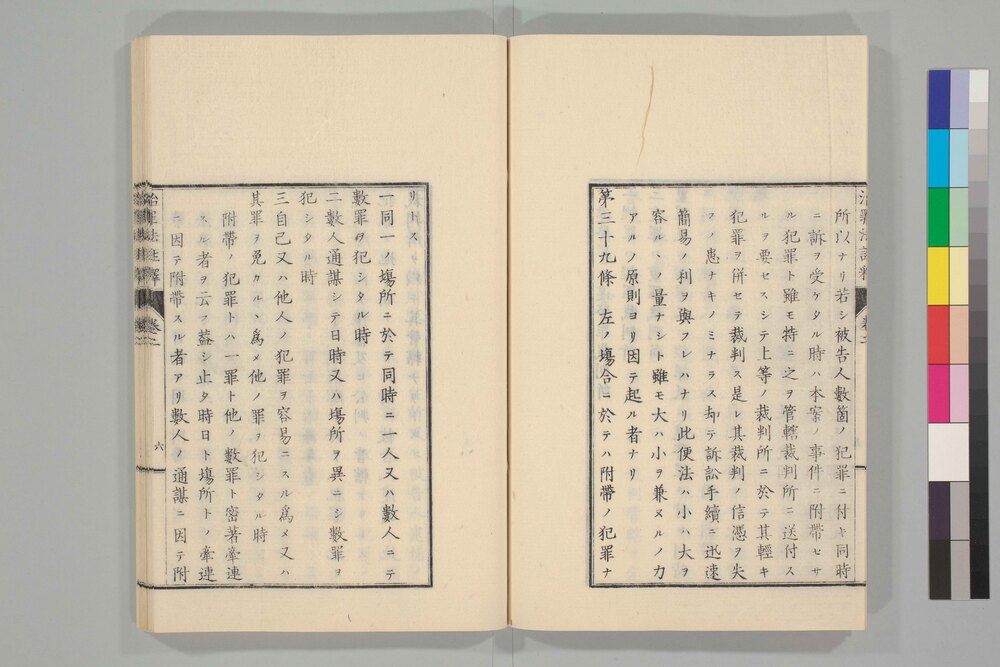 所以ナリ若シ被告人數箇ノ犯罪ニ付キ同時
ニ訴ヲ受ケタル時ハ本案ノ事件ニ附帶セサ
ル犯罪ト雖モ特ニ之ヲ管轄裁判所ニ送付ス
ルヲ要セスシテ上等ノ裁判所ニ於テ其輕キ
犯罪ヲ併セテ裁判ス是レ其裁判ノ信憑ヲ失
フノ患ナキノミナラス却テ訴訟手續ニ迅速
簡易ノ利ヲ與フレハナリ此便法ハ小ハ大ヲ
容ルヽノ量ナシト雖モ大ハ小ヲ兼ヌルノ力
アルノ原則ヨリ因テ起ル者ナリ
第三十九條左ノ塲合ニ於テハ附帶ノ犯罪ナ
リトス
一同一ノ塲所ニ於テ同時ニ一人又ハ數人ニテ
數罪ヲ犯シタル時
二數人通謀シテ日時又ハ塲所ヲ異ニシ數罪ヲ
犯シタル時
三自己又ハ他人ノ犯罪ヲ容易ニスル爲メ又ハ
其罪ヲ免カルヽ爲メ他ノ罪ヲ犯シタル時
附帶ノ犯罪トハ一罪ト他ノ數罪ト密著牽連
スル者ヲ云フ蓋シ止タ時日ト塲所トノ牽連
ニ因テ附帶スル者アリ數人ノ通謀ニ因テ附
治罪法註釋 卷二 六